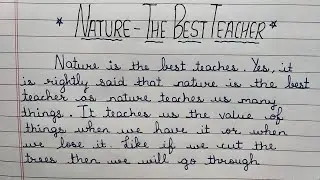 * NATURE - THE BEST TEACHER *
Nature is the best teaches. Yes, it
is rightly said that nature is the best
teacher as nature teaches us many
things. It teaches us the value of
things when we have it or when
we lose it. Like if we cut the
trees then we will go through